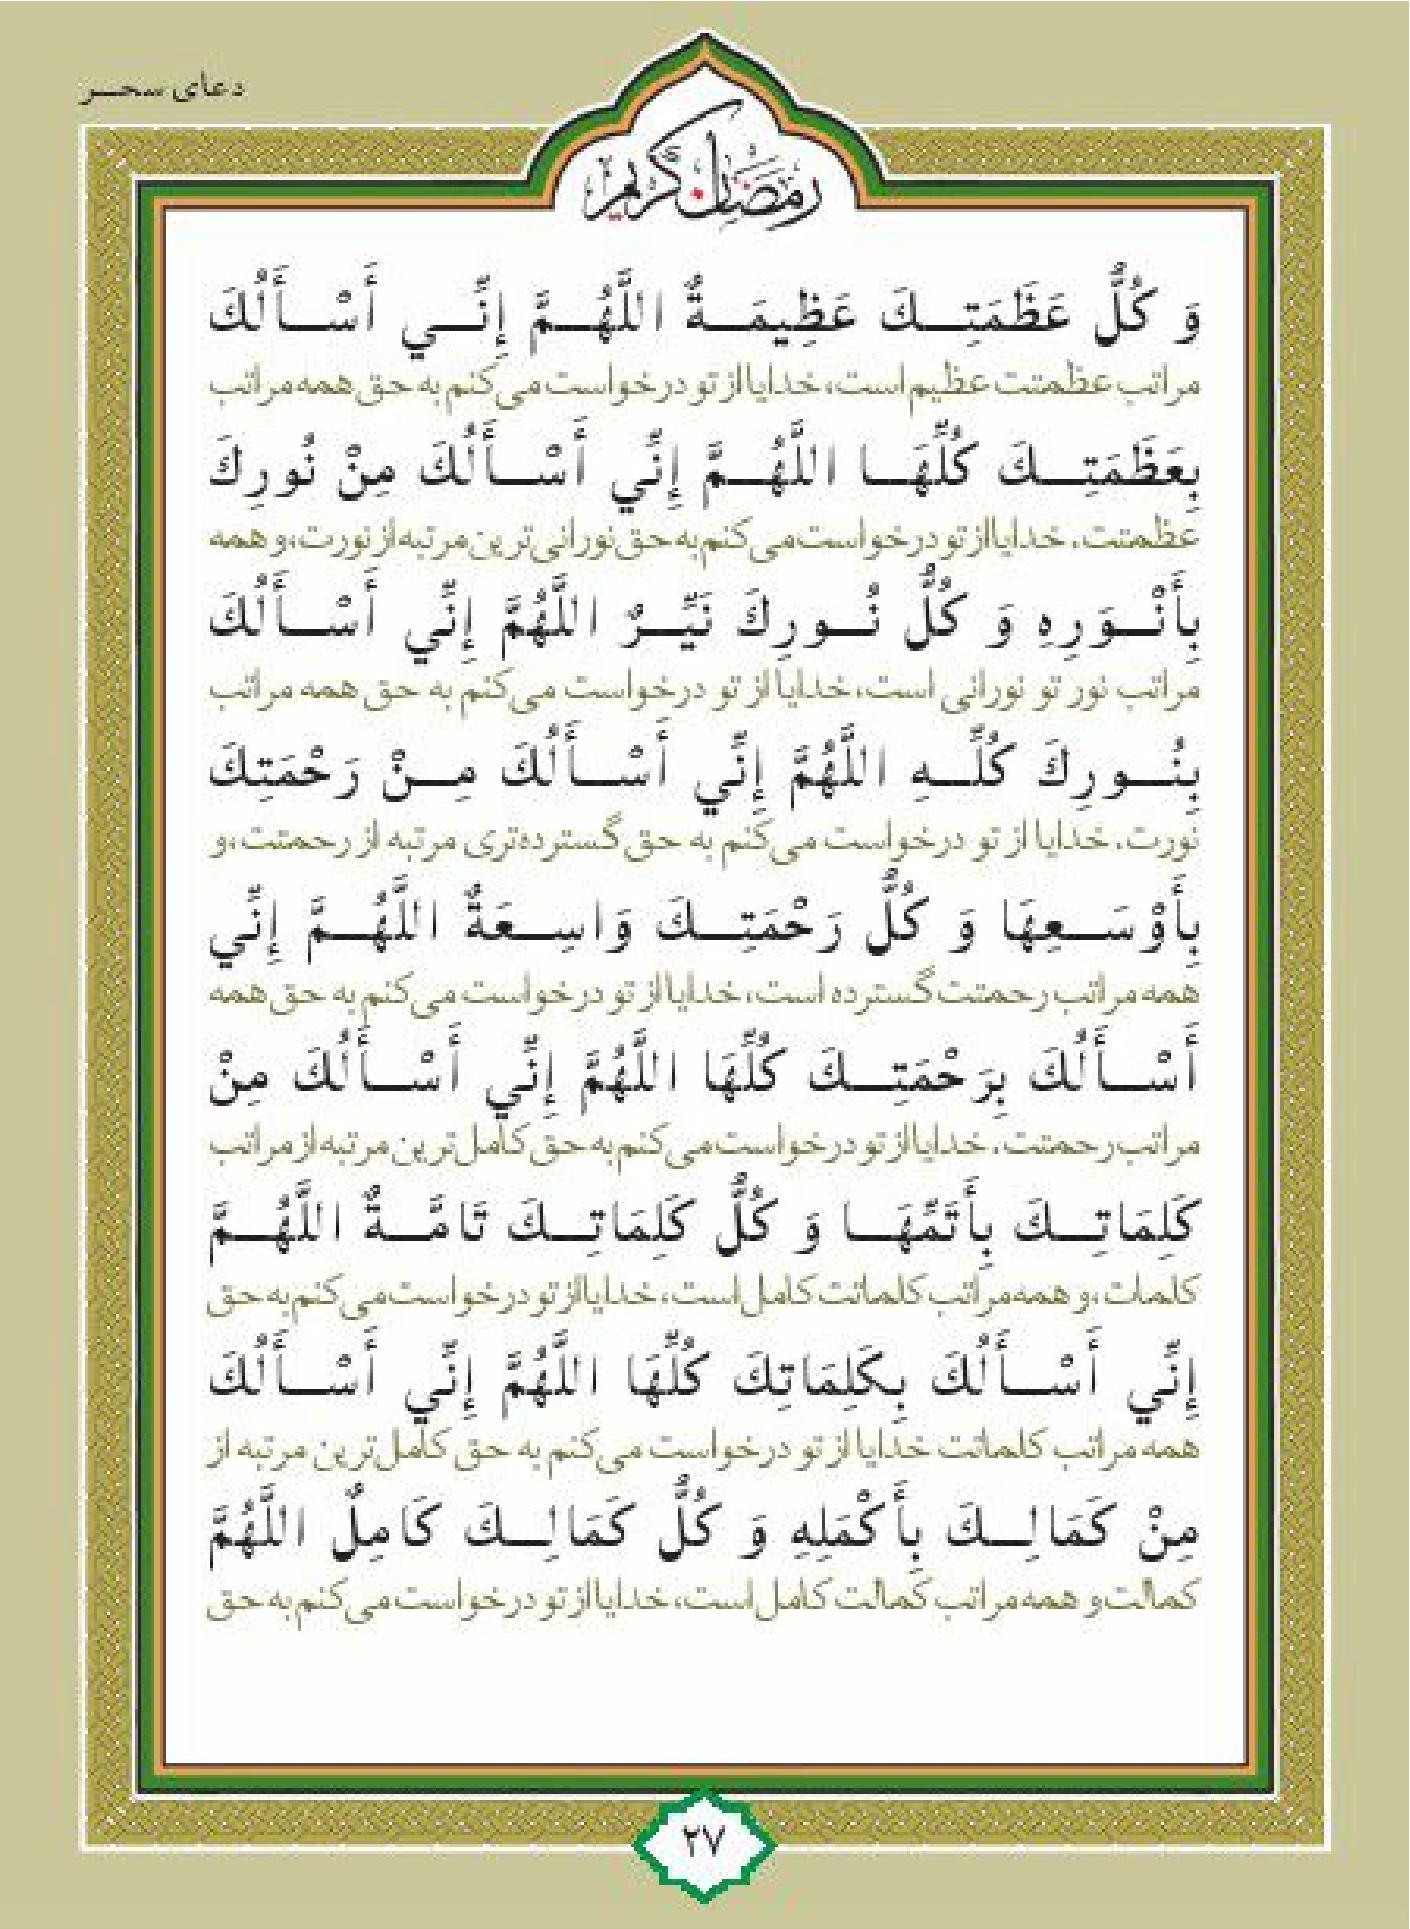 دعای سحـــر
رمضان کریم
وَ كُلُّ عَظَمَتِـــكَ عَظِيمَـــةٌ اللَّهُـــمَّ إِنِّـــي أَسْـــأَلُكَ
مراتب عظمتت عظیم است، خدایا از تو درخواست می‌کنم به حق همه مراتب
بِعَظَمَتِـــكَ كُلِّهَـــا اللَّهُـــمَّ إِنِّي أَسْـــأَلُكَ مِنْ نُورِكَ
عظمتت. خدایا از تو درخواست می‌کنم به حق نورانی‌ترین مرتبه از نورت، و همه
بِأَنْـــوَرِهِ وَ كُلُّ نُـــورِكَ نَيِّـــرٌ اللَّهُمَّ إِنِّي أَسْـــأَلُكَ
مراتب نور تو نورانی است، خدایا از تو درخواست می‌کنم به حق همه مراتب
بِنُـــورِكَ كُلِّـــهِ اللَّهُمَّ إِنِّي أَسْـــأَلُكَ مِـــنْ رَحْمَتِكَ
نورت. خدایا از تو درخواست می‌کنم به حق گسترده‌تری مرتبه از رحمتت، و
بِأَوْسَـــعِهَا وَ كُلُّ رَحْمَتِـــكَ وَاسِـــعَةٌ اللَّهُـــمَّ إِنِّي
همه مراتب رحمتت گسترده است، خدایا از تو درخواست می‌کنم به حق همه
أَسْـــأَلُكَ بِرَحْمَتِـــكَ كُلِّهَا اللَّهُمَّ إِنِّي أَسْـــأَلُكَ مِنْ
مراتب رحمتت. خدایا از تو درخواست می‌کنم به حق کامل‌ترین مرتبه از مراتب
كَلِمَاتِـــكَ بِأَتَمِّهَـــا وَ كُلُّ كَلِمَاتِـــكَ تَامَّـــةٌ اللَّهُـــمَّ
کلمات، و همه مراتب کلماتت کامل است، خدایا از تو درخواست می‌کنم به حق
إِنِّي أَسْـــأَلُكَ بِكَلِمَاتِكَ كُلِّهَا اللَّهُمَّ إِنِّي أَسْـــأَلُكَ
همه مراتب کلماتت خدایا از تو درخواست می‌کنم به حق کامل‌ترین مرتبه از
مِنْ كَمَالِـــكَ بِأَكْمَلِهِ وَ كُلُّ كَمَالِـــكَ كَامِلٌ اللَّهُمَّ
کمالت و همه مراتب کمالت کامل است، خدایا از تو درخواست می‌کنم به حق
۲۷